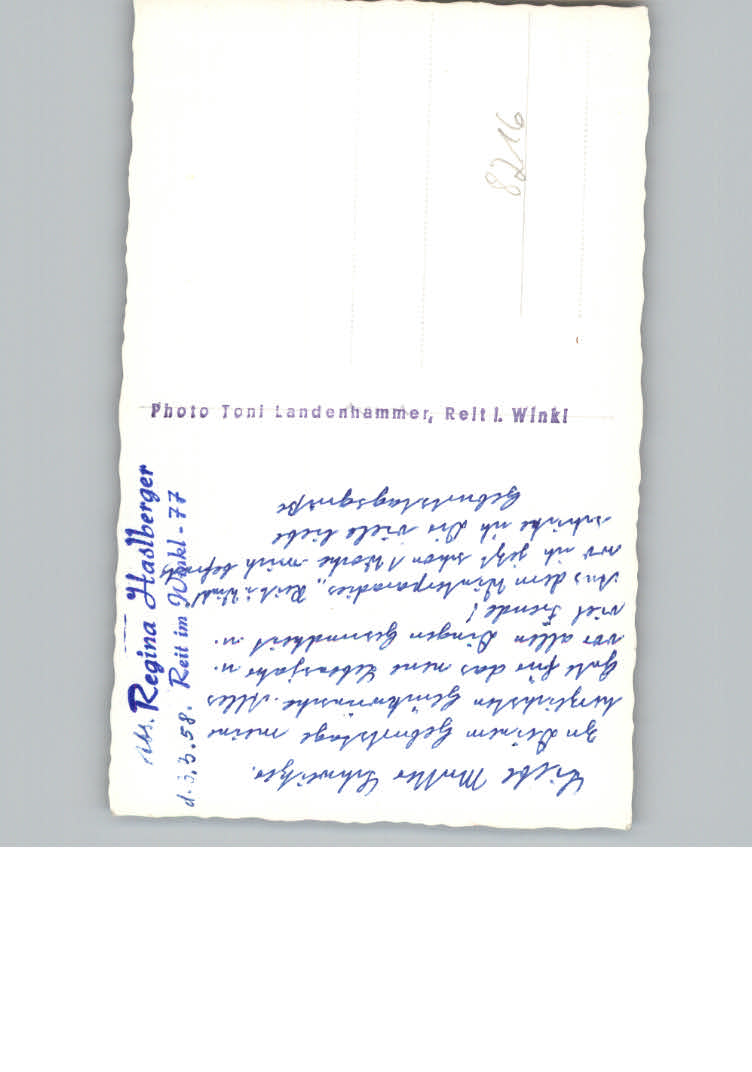 Abs. Regina Haslberger
d. 3.3.58. Reit im Winkl - 77
Liebe Mutter
Zu Deinem Geburtstage meine
herzlichsten Glückwünsche. Alles
Gute für das neue Lebensjahr u.
vor allen Dingen Gesundheit u.
viel Freude!
Aus dem Winterparadies „Reit i. Winkl
wo ich jetzt schon 1 Woche mich befinde
schicke ich Dir viele liebe
Geburtstagsgrüße
Photo Toni Landenhammer, Reit i. Winkl
8216